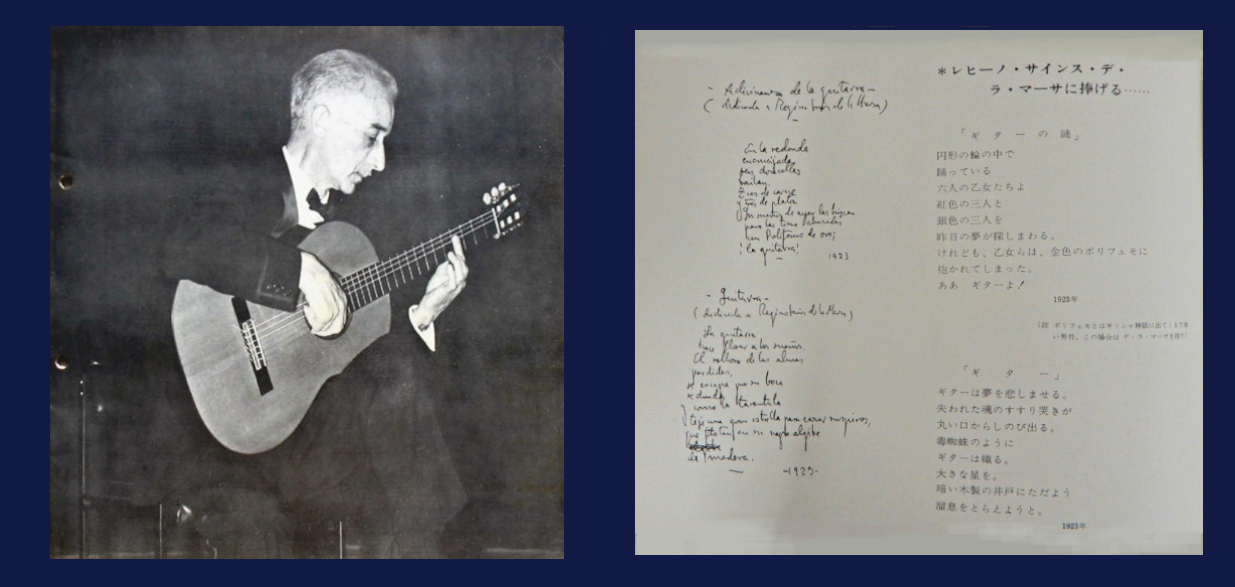 - Adivinanza de la guitarra -
(dedicada a Regino Sainz de la Maza)
En la redonda
encrucijada
seis doncellas
bailan.
Tres de carne
y tres de plata.
Los sueños de ayer las buscan
pero las tiene abrazadas
un Polifemo de oro;
¡La guitarra!
1923
- Guitarra -
(dedicada a Regino Sainz de la Maza)
La guitarra
hace llorar a los sueños.
El sollozo de las almas
perdidas,
se escapa por su boca
redonda
y como la tarantula
teje una gran estrella para cazar suspiros,
que flotan en su negro algibe
de madera.
-1923-
*レヒーノ・サインス・デ・
ラ・マーサに捧げる……
「ギターの謎」
円形の輪の中で
踊っている
六人の乙女たちよ
紅色の三人と
銀色の三人を
昨日の夢が探しまわる。
けれども、乙女らは、金色のポリフェモに
抱かれてしまった。
ああ ギターよ!
1923年
(註 ポリフェモとはギリシャ神話に出てくる
男性、この場合は デ・ラ・マーサを指す)
「ギター」
ギターは夢を悲しませる。
失われた魂のすすり哭きが
丸い口からしのび出る。
毒蜘蛛のように
ギターは織る。
大きな星を。
暗い木製の井戸にただよう
溜息をとらえようと。
1923年